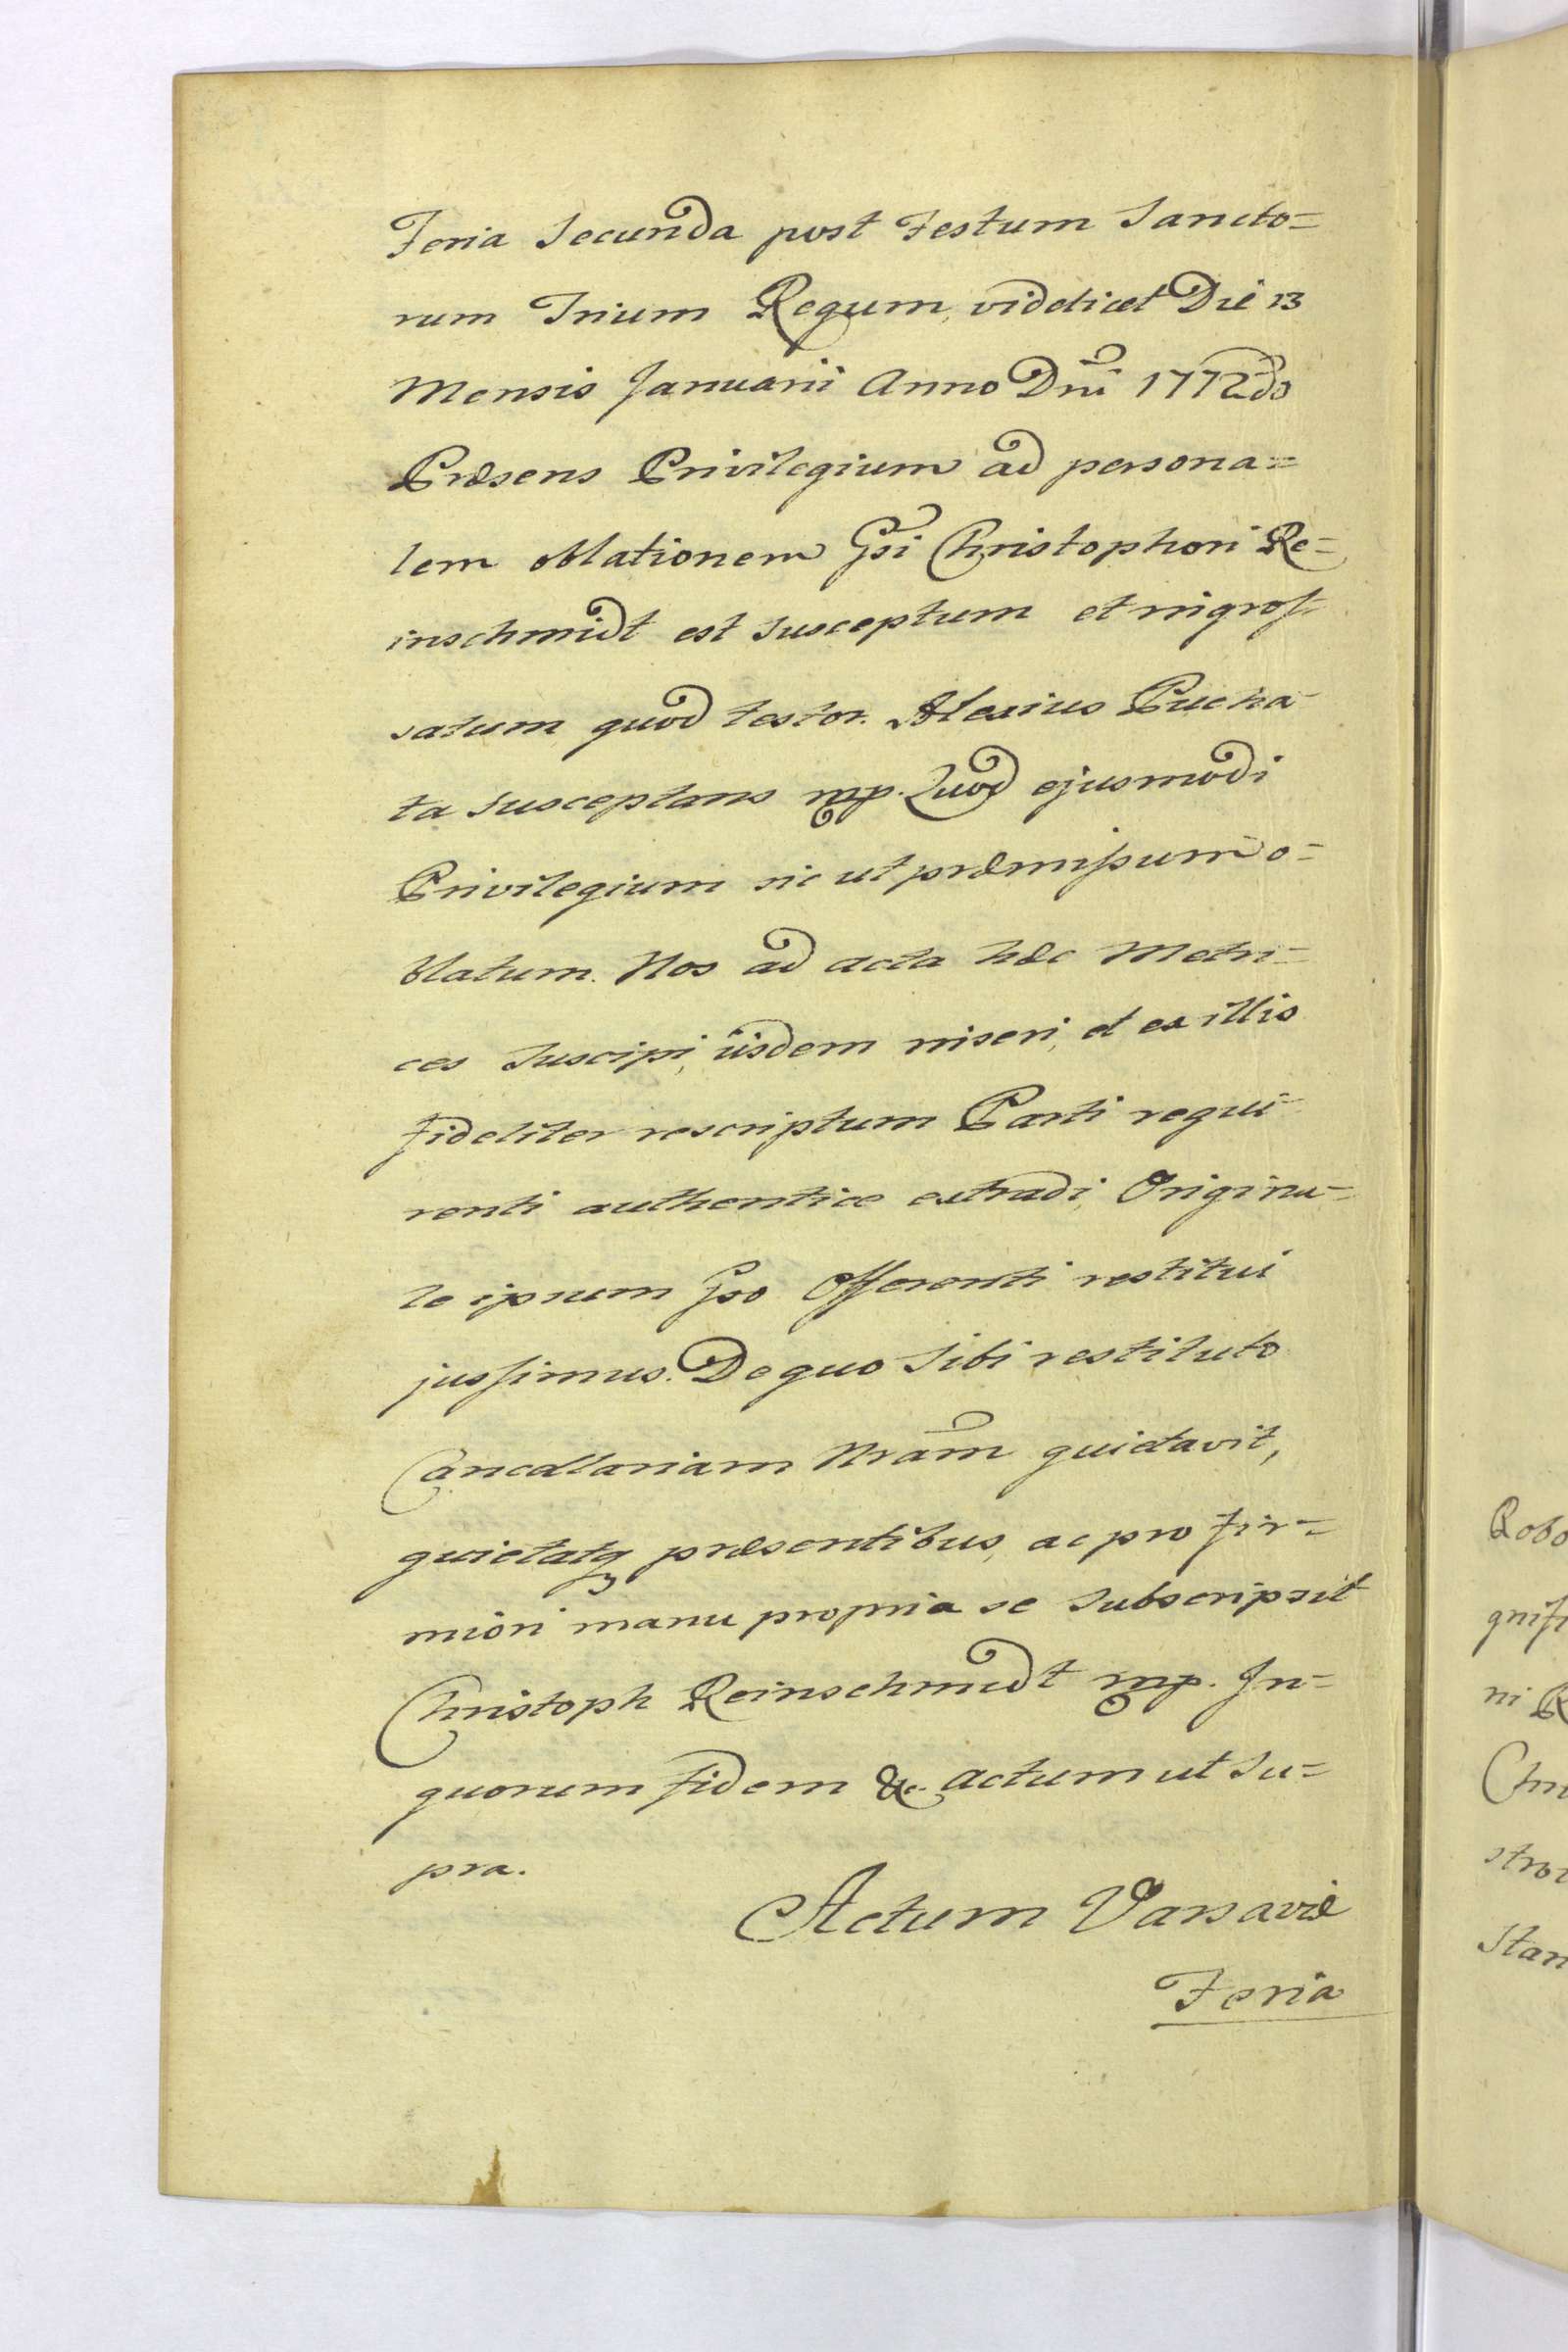 Feria Secunda post Festum Sancto=
rum Trium Regum, videlicet Die 13
Mensis Januarii Anno Dni 1772do
Præsens Privilegium ad persona=
lem oblationem Gsi Christophori Re=
inschmidt est susceptum et ingros-
satum quod testor. Alexius Pucha-
ta Susceptans mp. Quod ejusmodi
Privilegium sic ut præmissum o=
blatum. Nos ad acta hæc Metri=
ces Suscipi, iisdem inseri, et ex illis
fideliter rescriptum Parti requi-
renti authentice extradi, Origina-
le ipsum Gso Offerenti restitui
jussimus. De quo Sibi restituto
Cancellariam Nram quietavit,
quietatq præsentibus, ac pro fir=
miori manu propria se Subscripsit
Christoph Reinschmidt mp. In=
quorum fidem &c. actum ut Su=
pra.
Actum Varsaviæ
Feria
Robo
gnifi
ni
Chri
stro
Stan